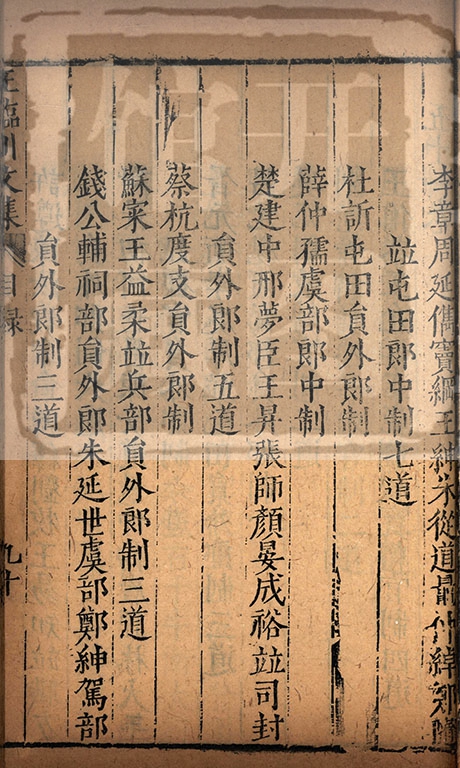 李章周延儁竇綱王紳朱從道
竝屯田郎中制七道
杜訢屯田貟外郎制
薛仲孺虞部郎中制
楚建中邢夢臣王昇張師顔晏成裕竝司封
貟外郎制五道
蔡杭度支貟外郎制
蘇寀王益柔竝兵部貟外郎制三道
錢公輔祠部貟外郎朱延世虞部鄭紳駕部
貟外郎制三道
王臨川文集 目録 九十